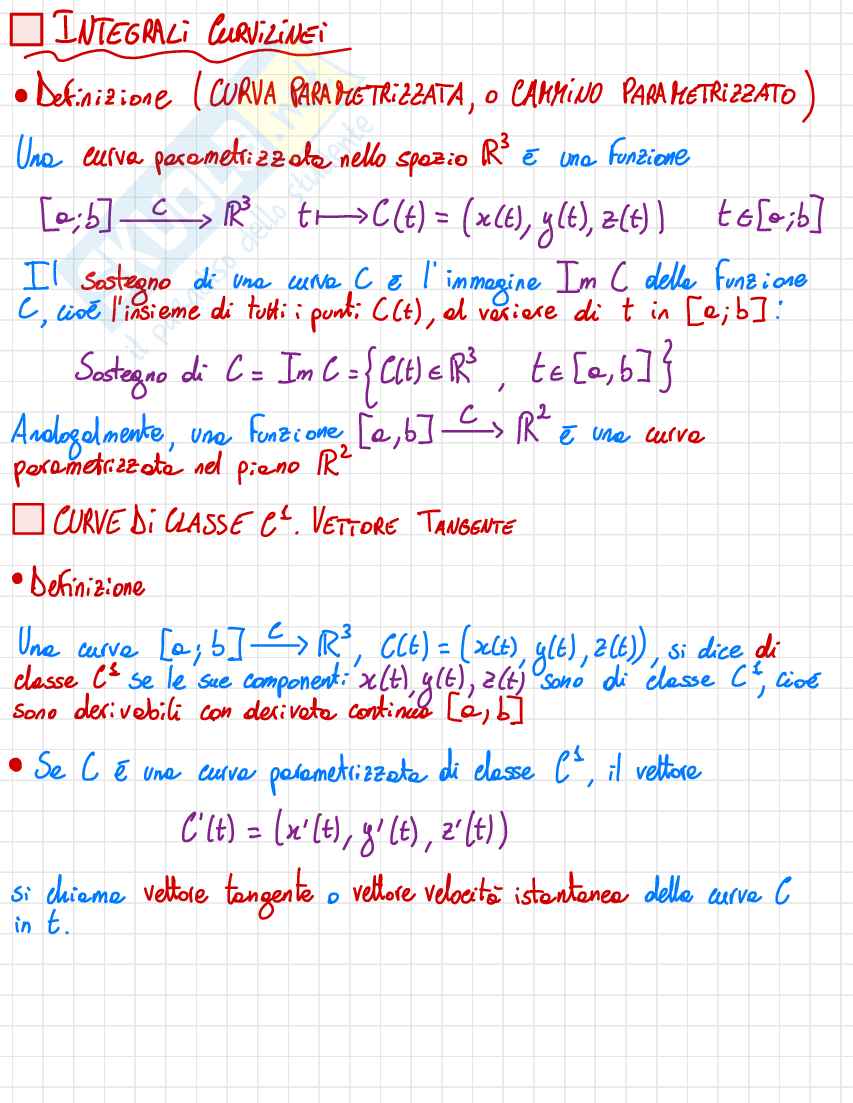 INTEGRALI CURVILINEI
• Definizione (CURVA PARAMETRIZZATA, o CAMMINO PARAMETRIZZATO)
Una curva parametrizzata nello spazio ℝ³ è una funzione
[a;b] —C→ ℝ³ t ↦ C(t) = (x(t), y(t), z(t)) t∈[a;b]
Il sostegno di una curva C è l'immagine Im C della funzione
C, cioè l'insieme di tutti i punti C(t), al variare di t in [a;b]:
Sostegno di C = Im C = {C(t)∈ℝ³ , t∈[a,b]}
Analogalmente, una funzione [a,b] —C→ ℝ² è una curva
parametrizzata nel piano ℝ²
CURVE DI CLASSE C¹. VETTORE TANGENTE
• Definizione
Una curva [a;b] —C→ ℝ³, C(t) = (x(t), y(t), z(t)), si dice di
classe C¹ se le sue componenti x(t), y(t), z(t) sono di classe C¹, cioè
sono derivabili con derivata continua [a,b]
• Se C è una curva parametrizzata di classe C¹, il vettore
C'(t) = (x'(t), y'(t), z'(t))
si chiama vettore tangente o vettore velocità istantanea della curva C
in t.
SKUOLA.net
il paradiso dello studente